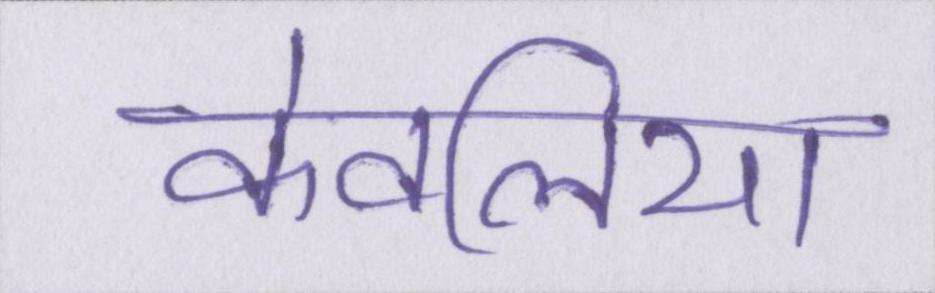 केवलिया